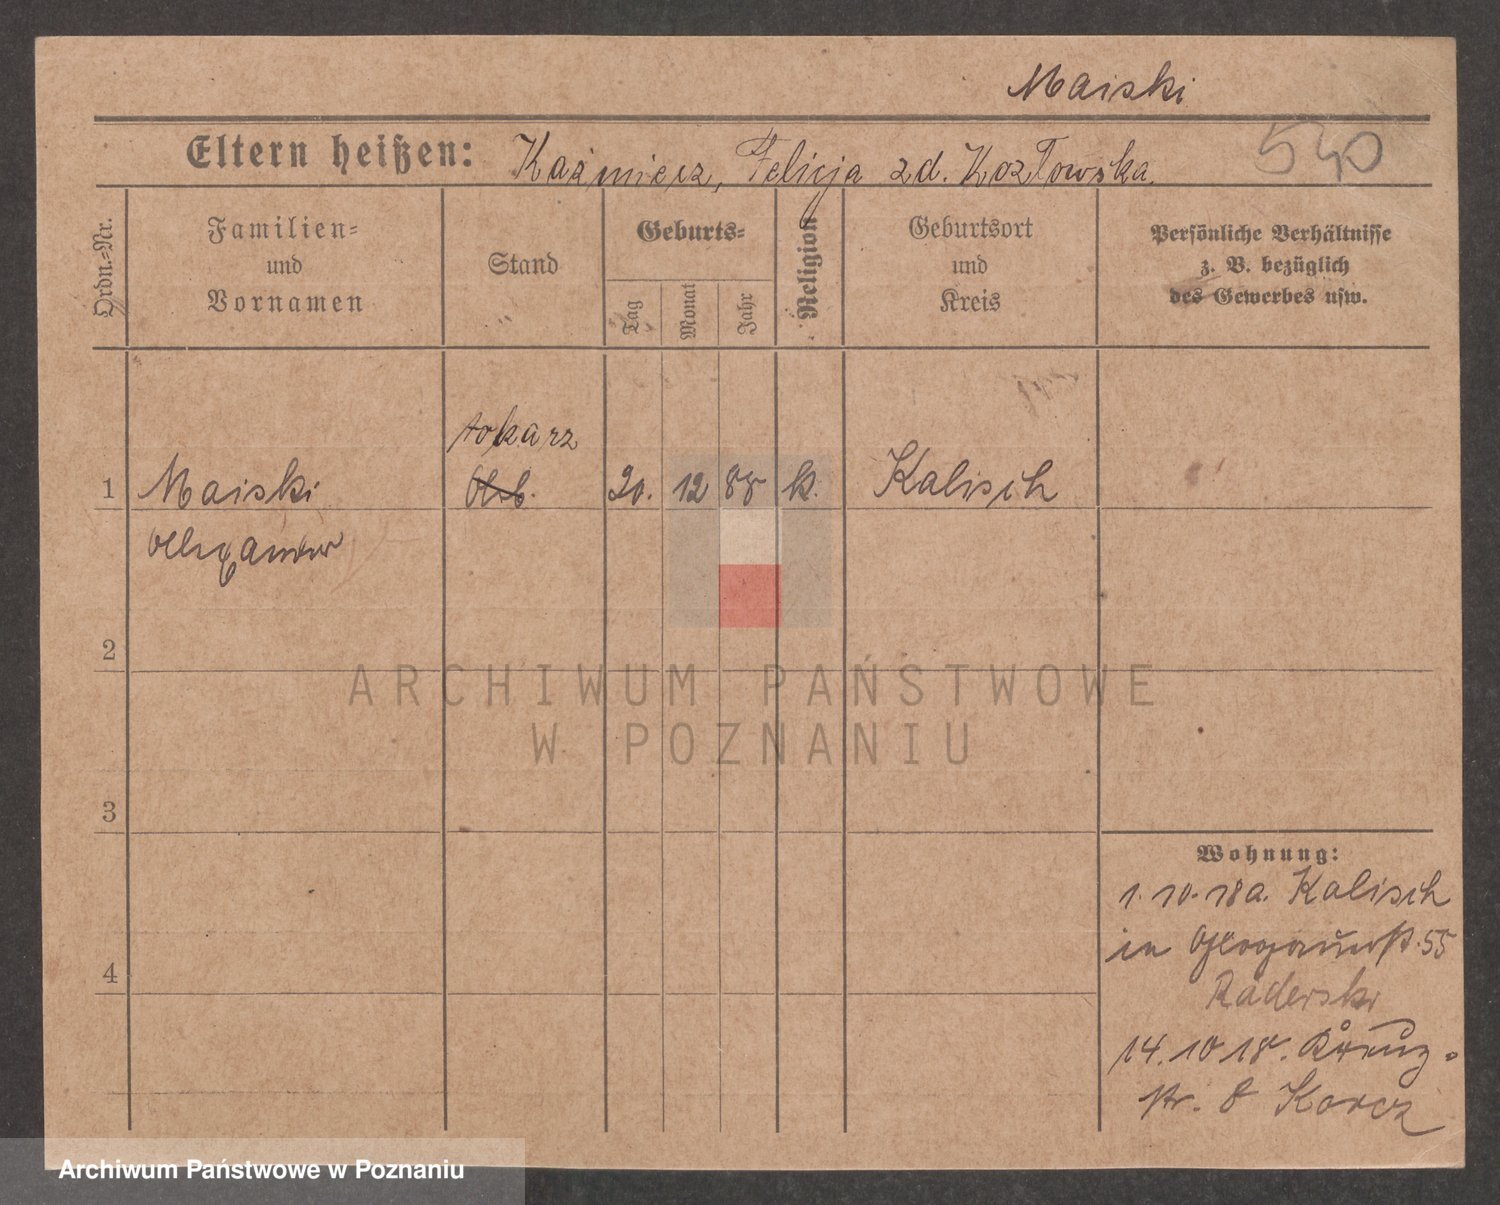 Maiski
Eltern heißen: Kaźmierz, Felicja zd. Kozłowska.
540
Ordn.-Nr.
Familien-
und
Vornamen
Stand
Geburts-
Tag
Monat
Jahr
Religion
Geburtsort
und
Kreis
Persönliche Verhältnisse
z. B. bezüglich
des Gewerbes usw.
tokarz
1 Maiski Arb. 20. 12 88 k. Kalisch
Alexander
2
ARCHIWUM PAŃSTWOWE
W POZNANIU
3
Wohnung:
1.10.18 a. Kalisch
in Glogauerst. 55
Raderski
4
14.10 18. Kreuz-
str. 8 Korcz
Archiwum Państwowe w Poznaniu